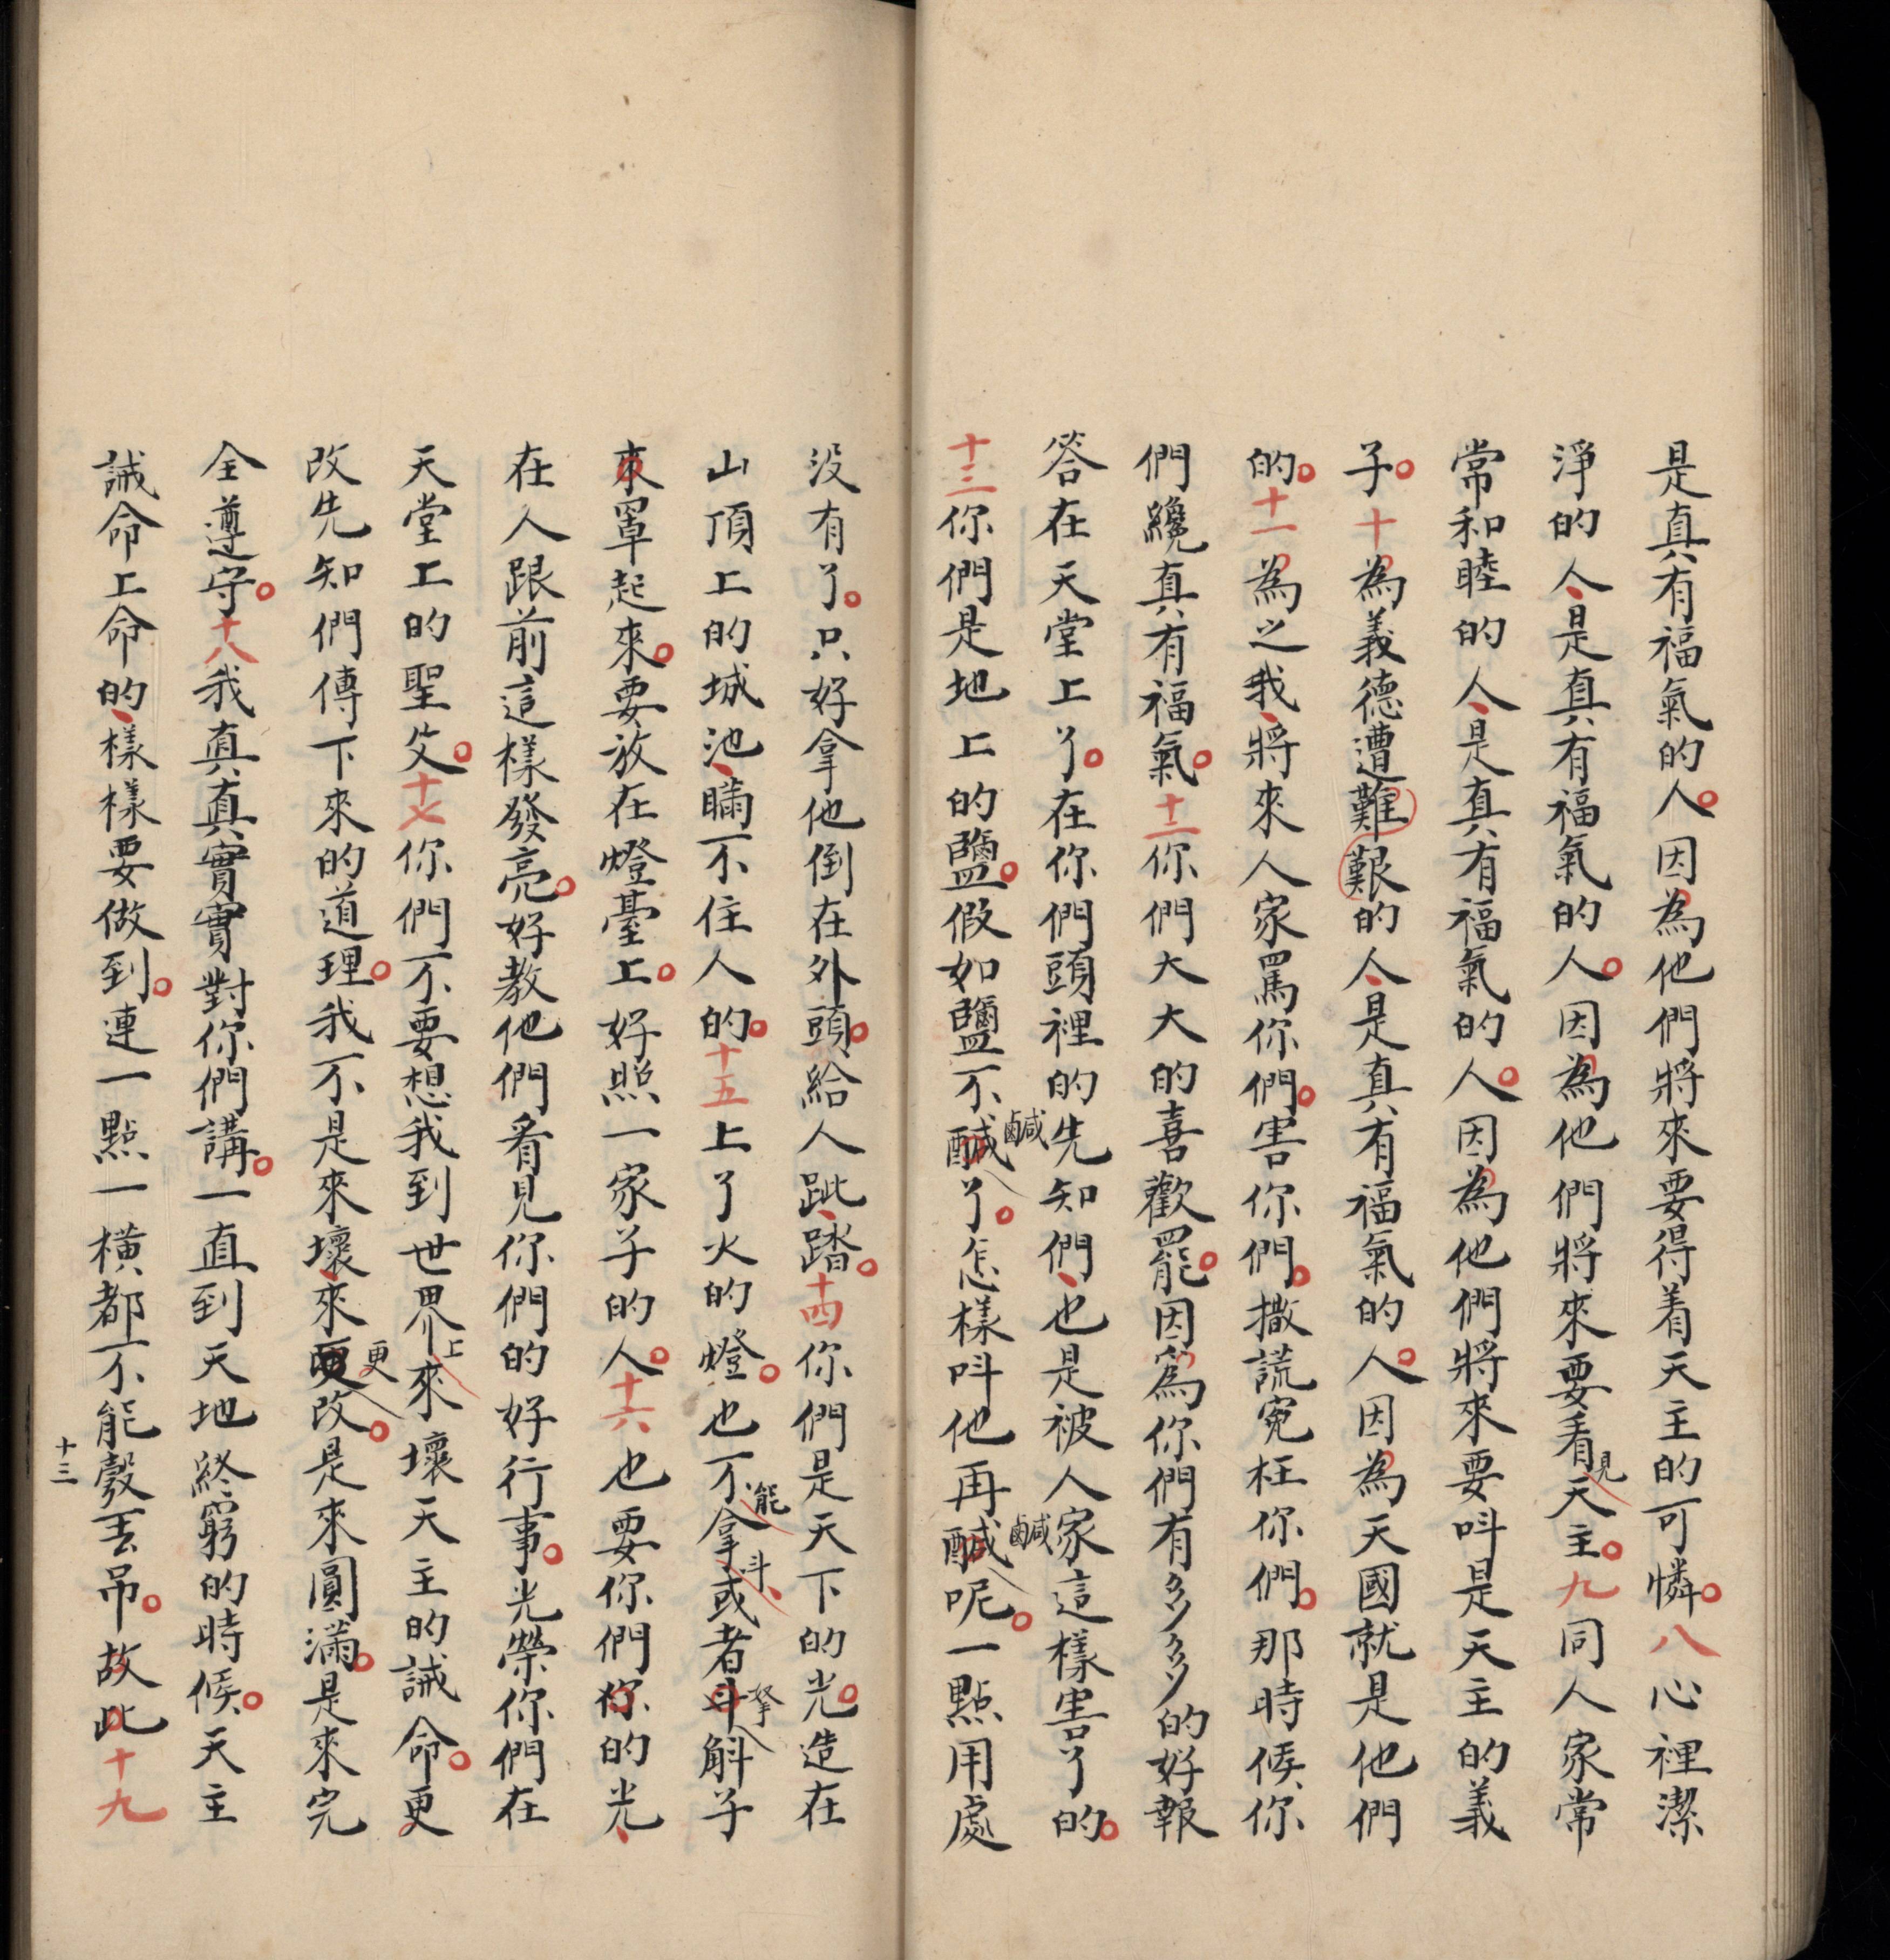 是真有福氣的人。因為他們將來要得着天主的可憐。八心裡潔
淨的人、是真有福氣的人。因為他們將來要看見天主。九同人家常
常和睦的人、是真有福氣的人。因為他們將來要呌是天主的義
子。十為義德遭難艱的人、是真有福氣的人。因為天國就是他們
的。十一為之我、將來人家罵你們。害你們。撒謊寃枉你們。那時候、你
們纔真有福氣。十二你們大大的喜歡罷。因為你們有多多的好報
答在天堂上了。在你們頭裡的先知們、也是被人家這樣害了的。
十三你們是地上的鹽。假如鹽不醎鹹了。怎樣呌他再醎鹹呢。一點用處
没有了。只好拿他倒在外頭。給人跐、踏。十四你們是天下的光。造在
山頂上的城池、瞞不住人的。十五上了火的燈。也不能拿斗、或者斗拏斛子
來罩起來。要放在燈臺上。好照一家子的人。十六也要你們你的光、
在人跟前這樣發亮。好教他們看見你們的好行事。光榮你們在
天堂上的聖父。十七你們不要想我到世界上來壞天主的誡命。更
改先知們傳下來的道理。我不是來壞、來更改。是來圓滿。是來完
全遵守。十八我真真實實對你們講。一直到天地終窮的時候。天主
誡命上命的、樣樣要做到。連一點一橫都不能彀丟吊。故此十九
十三